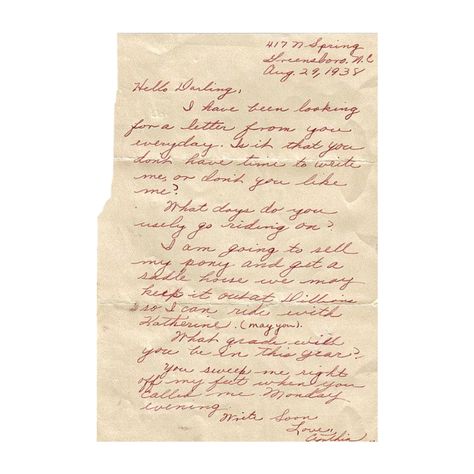 417 N Spring
Greensboro, N.C
Aug. 29, 1938
Hello Darling,
I have been looking
for a letter from you
everyday. Is it that you
dont have time to write
me, or don't you like
me?
What days do you
usely go riding on?
I am going to sell
my pony and get a
sadle horse we may
keep it out at
so I can ride with
Katherine. (may you).
What grade will
you be in this year?
You sweep me right
off my feet when you
called me Monday
evening
Write Soon
Love,,
Cynthia